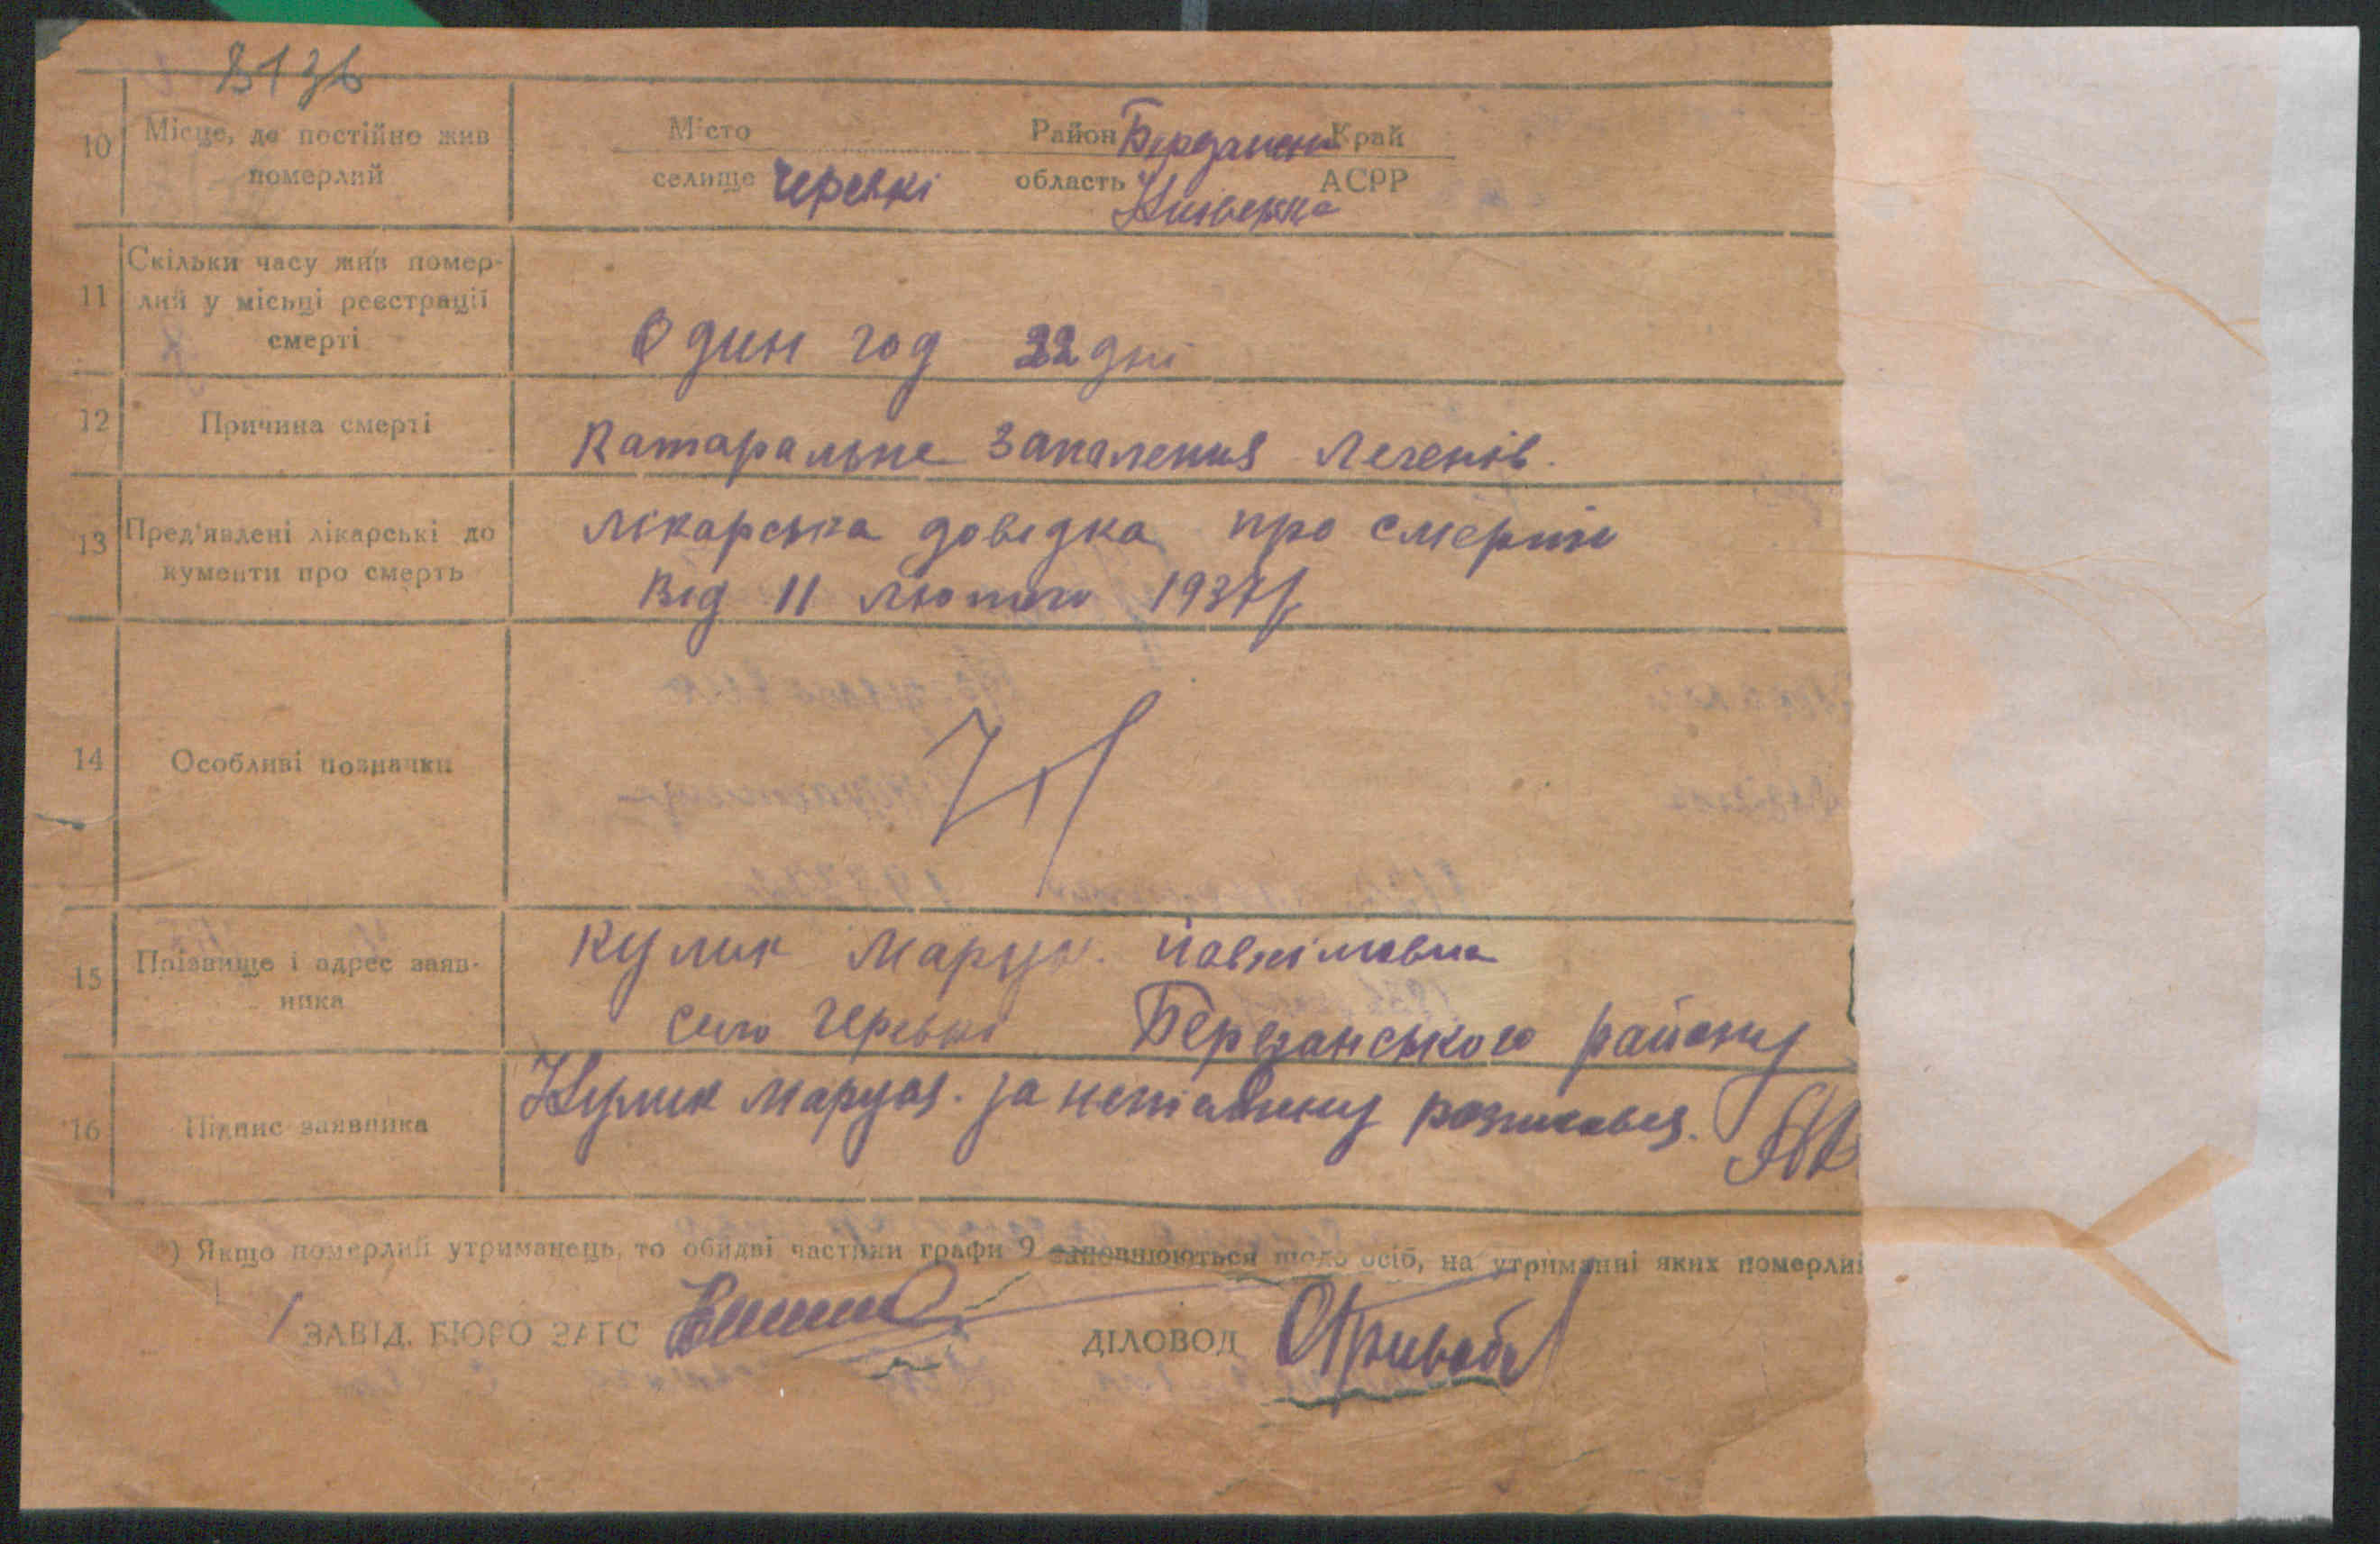 8136
10 Місце, де постійно жив
померлий
Місто
селище Черевкі
Район Край
область Київська АСРР
11 Скільки часу жив помер-
лий у місьці реєстрації
смерті
Один год 22 дні
12 Причина смерті
Катаральне Запалення Легенів.
13 Пред'явлені лікарські до
кументи про смерть
Лікарська довідка про смерть
Від 11 лютого 1937 р
14 Особливі позначки
15 Прізвище і адрес заяв-
ника
Кулик Маруся.
село Черевкі Березанського району
16 Підпис заявника
Кулик Маруся. за неписьменну розписався.
) Якщо померлий утриманець, то обидві частини графи 9 заповнюються щодо осіб, на утриманні яких померлий
ЗАВІД. БЮРО ЗАГС
ДІЛОВОД